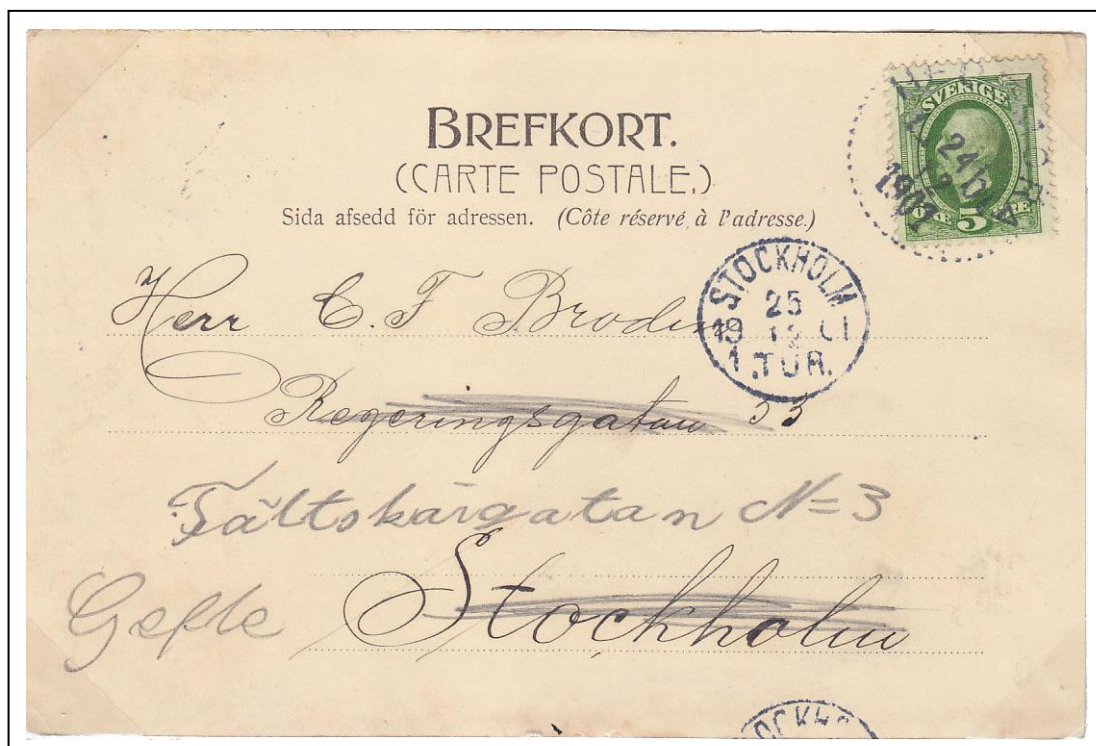 BREFKORT.
(CARTE POSTALE.)
Sida afsedd för adressen. (Côte réservé à l'adresse.)
SVERIGE
5
24 12
1901
STOCKHOLM
25
19 12 01
1.TUR.
Herr C. F. Brodin
Regeringsgatan 53
Fältskärgatan N=3
Gefle Stockholm